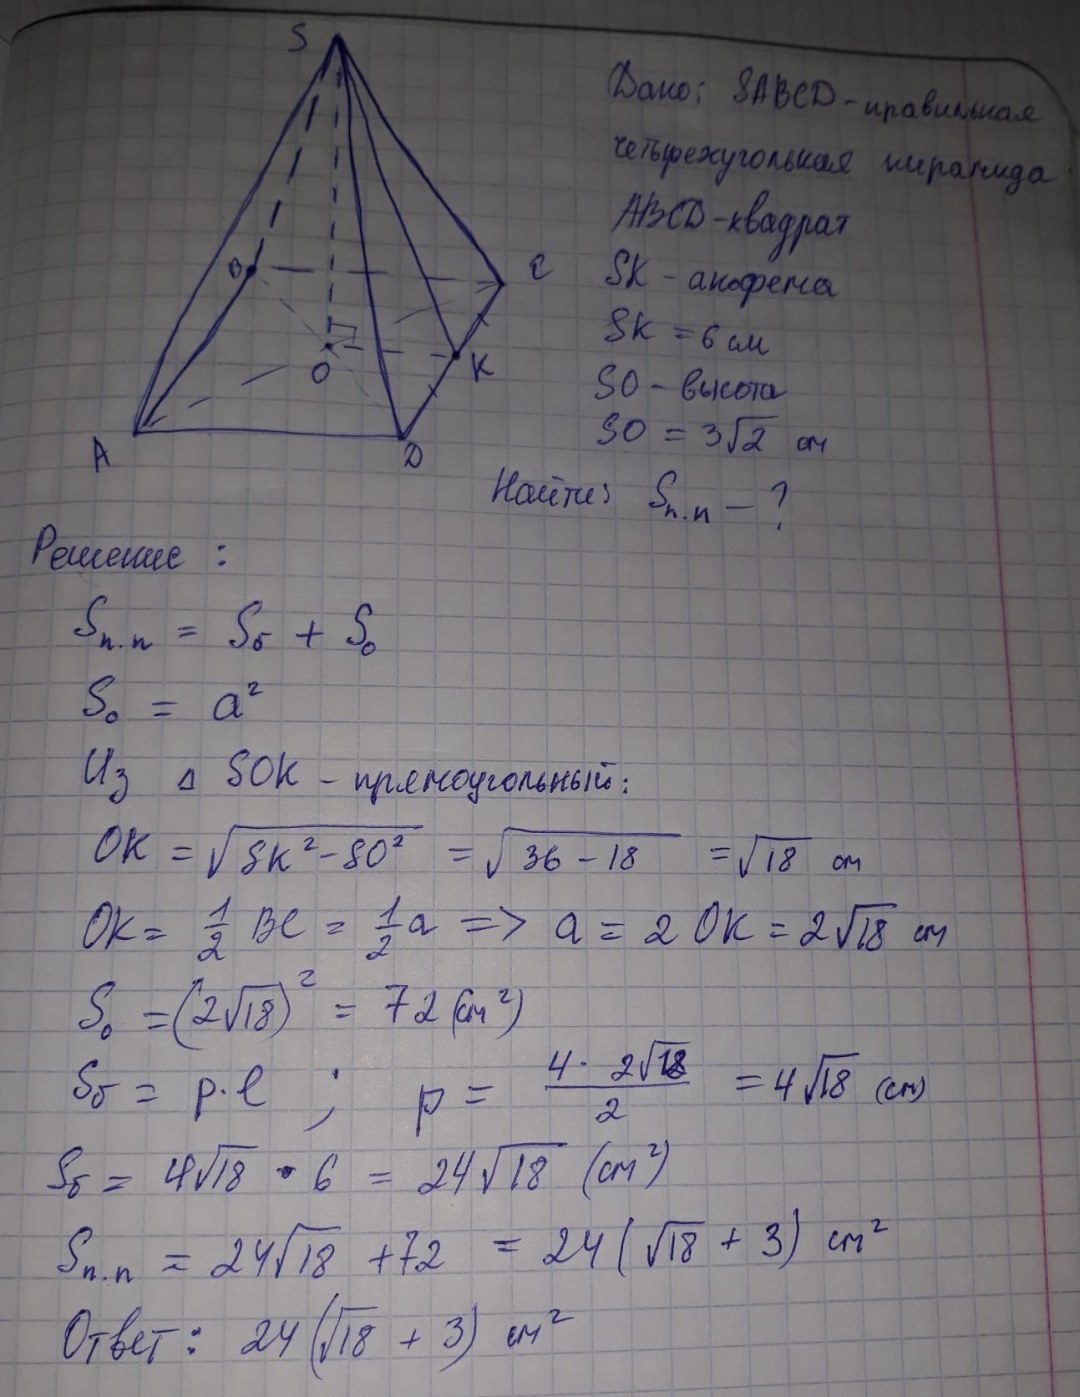 S
Дано: SABCD - правильная
четырехугольная пирамида
ABCD - квадрат
SK - апофема
SK = 6 см
SO - высота
SO = 3√2 см
B
C
O
K
A
D
Найти: Sп.п - ?
Решение:
Sп.п = Sб + So
So = a²
Из Δ SOK - прямоугольный:
OK = √(SK² - SO²) = √(36 - 18) = √18 см
OK = 1/2 BC = 1/2 a => a = 2 OK = 2√18 см
So = (2√18)² = 72 (см²)
Sб = p·l ; p = 4 · 2√18 / 2 = 4√18 (см)
Sб = 4√18 · 6 = 24√18 (см²)
Sп.п = 24√18 + 72 = 24(√18 + 3) см²
Ответ: 24(√18 + 3) см²